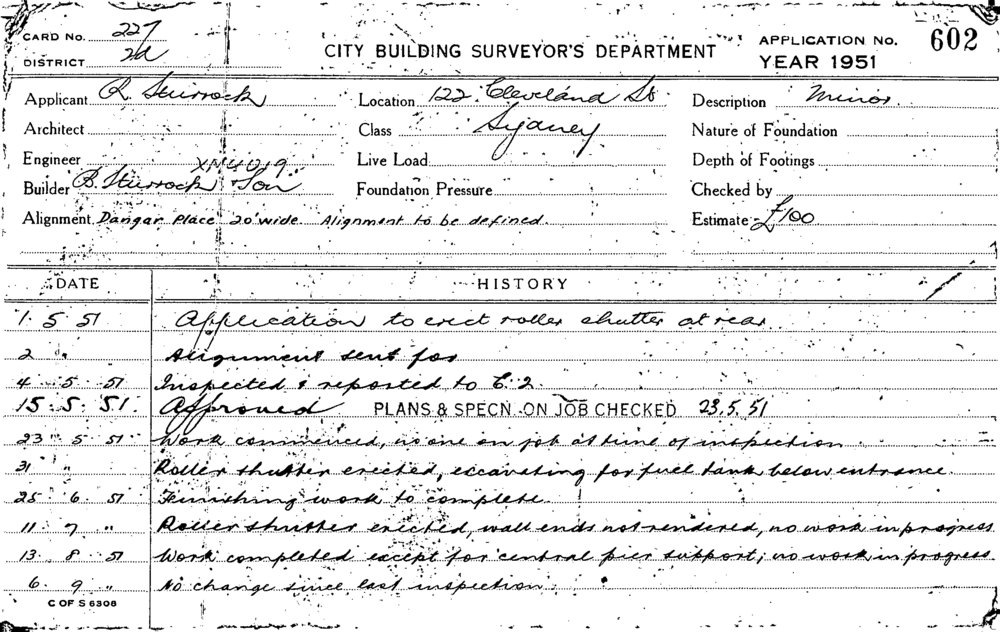 CARD No. 227
DISTRICT 2a
CITY BUILDING SURVEYOR'S DEPARTMENT
APPLICATION No. 602
YEAR 1951
Applicant R. Sturrock Location 122 Cleveland St Description Minor
Architect Class Sydney Nature of Foundation
Engineer XM4019 Live Load Depth of Footings
Builder B. Sturrock & Son Foundation Pressure Checked by
Alignment Dangar Place 20' wide. Alignment to be defined. Estimate £100
DATE HISTORY
1 . 5 51 Application to erect roller shutter at rear
2 " Alignment sent for
4 . 5 . 51 Inspected & reported to C.2.
15 . 5 . 51. Approved PLANS & SPECN ON JOB CHECKED 23.5.51
23 5 51 Work commenced, no one on job at time of inspection
31 " Roller shutter erected, excavating for fuel tank below entrance.
25 6. 51 Finishing work to complete
11 . 7 " Roller shutter erected, wall ends not rendered, no work in progress
13 . 8 51 Work completed except for central pier support; no work in progress
6. 9 " No change since last inspection
C OF S 6308